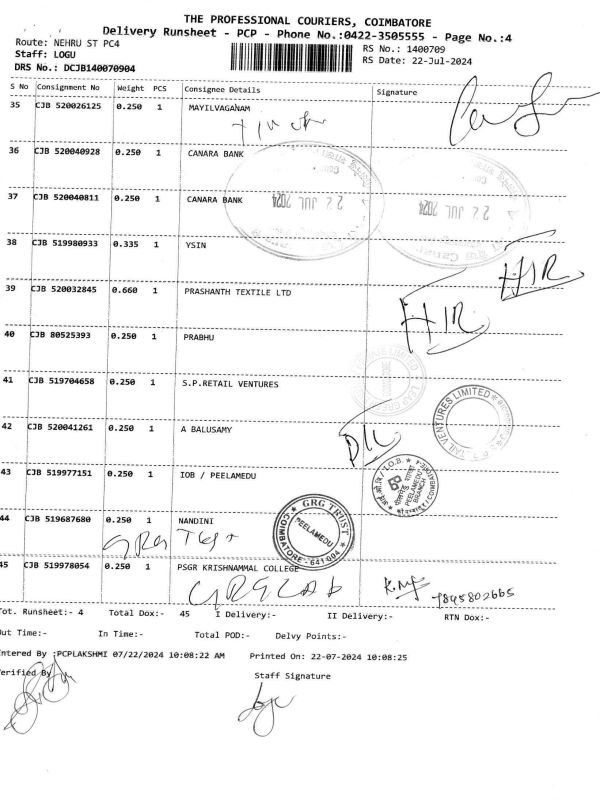 THE PROFESSIONAL COURIERS, COIMBATORE
Delivery Runsheet - PCP - Phone No.:0422-3505555 - Page No.:4
Route: NEHRU ST PC4
RS No.: 1400709
Staff: LOGU
RS Date: 22-Jul-2024
DRS No.: DCJB140070904
S No Consignment No Weight PCS Consignee Details Signature
35 CJB 520026125 0.250 1 MAYILVAGANAM
36 CJB 520040928 0.250 1 CANARA BANK
37 CJB 520040811 0.250 1 CANARA BANK
22 JUL 2024
22 JUL 2024
38 CJB 519980933 0.335 1 YSIN
39 CJB 520032845 0.660 1 PRASHANTH TEXTILE LTD
40 CJB 80525393 0.250 1 PRABHU
41 CJB 519704658 0.250 1 S.P.RETAIL VENTURES
TAIL VENTURES LIMITED
42 CJB 520041261 0.250 1 A BALUSAMY
43 CJB 519977151 0.250 1 IOB / PEELAMEDU
I.O.B.
PEELAMEDU
BRANCH
44 CJB 519687680 0.250 1 NANDINI
GRG TRUST
PEELAMEDU
COIMBATORE - 641 004
45 CJB 519978054 0.250 1 PSGR KRISHNAMMAL COLLEGE
7845802665
Tot. Runsheet:- 4 Total Dox:- 45 I Delivery:- II Delivery:- RTN Dox:-
Out Time:- In Time:- Total POD:- Delvy Points:-
Entered By :PCPLAKSHMI 07/22/2024 10:08:22 AM Printed On: 22-07-2024 10:08:25
Verified By
Staff Signature